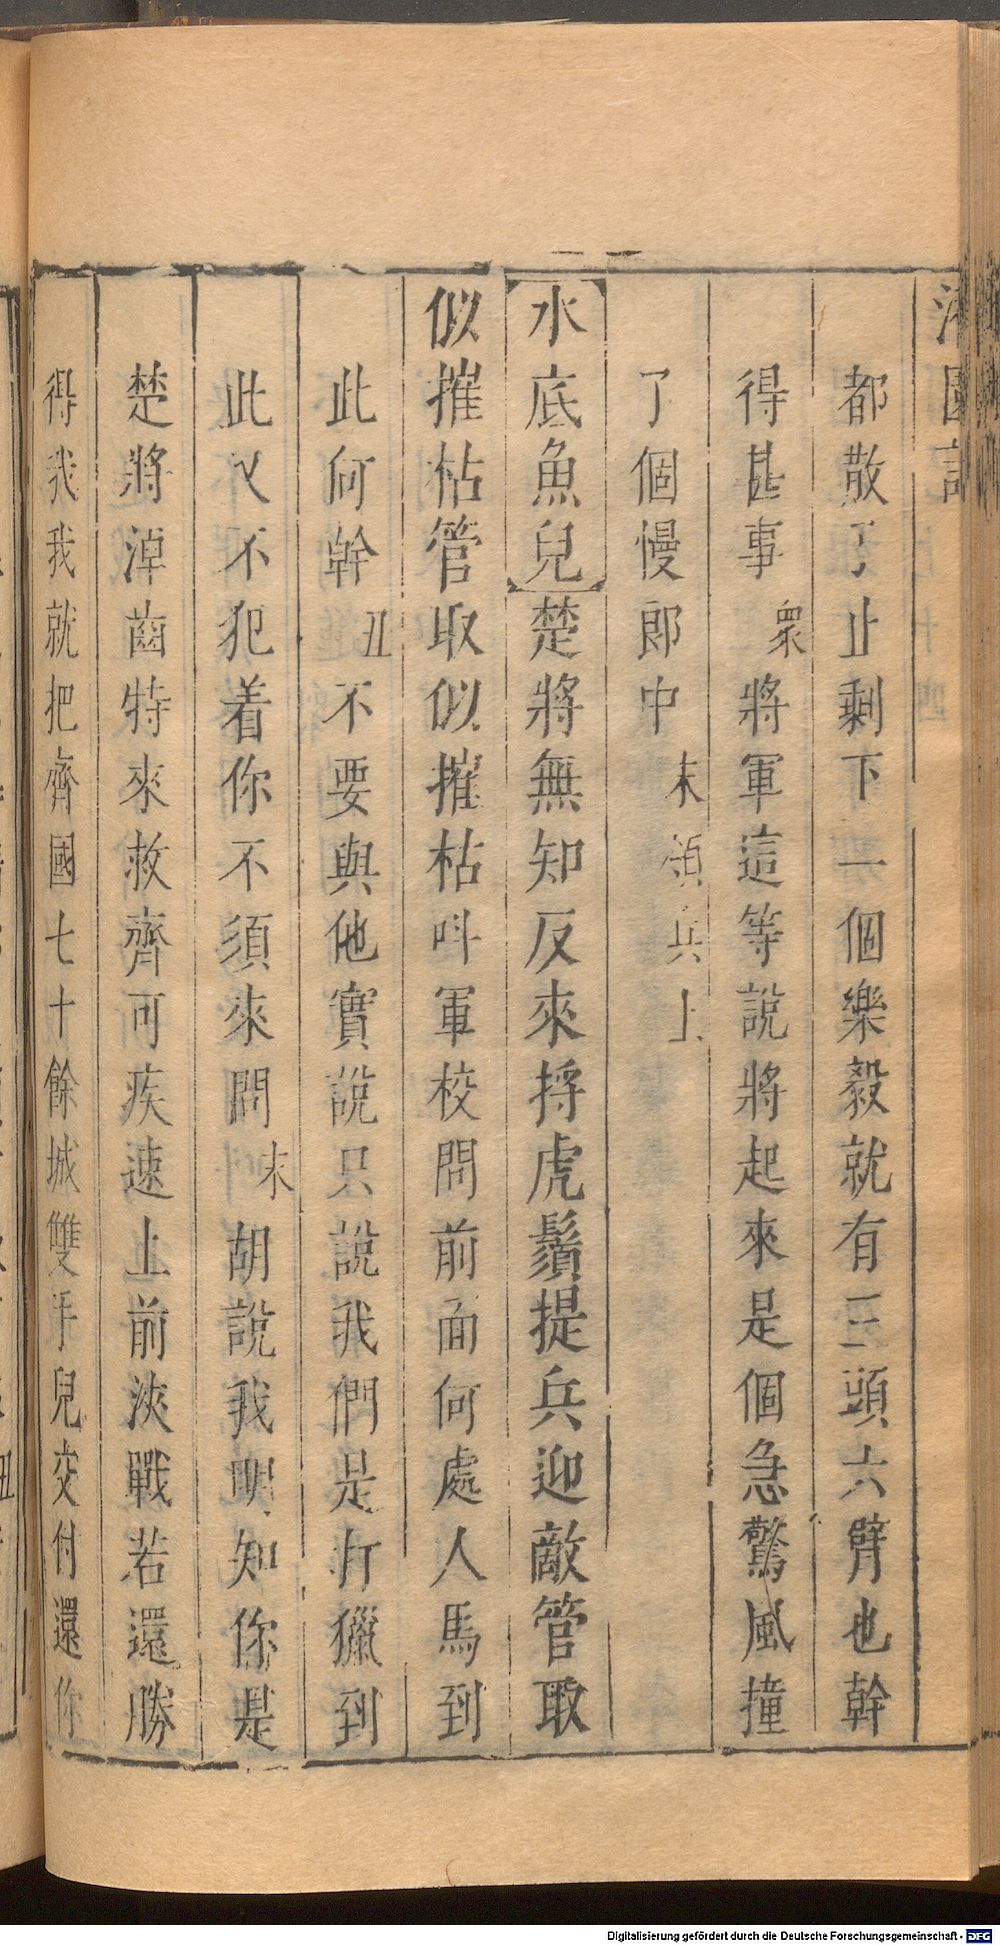 都散了止剩下一個樂毅就有三頭六臂也幹
得甚事衆將軍這等說將起來是個急驚風撞
了個慢郎中末領兵上
水底魚兒楚將無知反來捋虎鬚提兵迎敵管取
似摧枯管取似摧枯呌軍校問前面何處人馬到
此何幹丑不要與他實說只說我們是打獵到
此乂不犯着你不須來問末胡說我明知你是
楚將淖齒特來救齊可疾速上前浹戰若還勝
得我我就把齊國七十餘城雙手兒交付還你
Digitalisierung gefördert durch die Deutsche Forschungsgemeinschaft - DFG